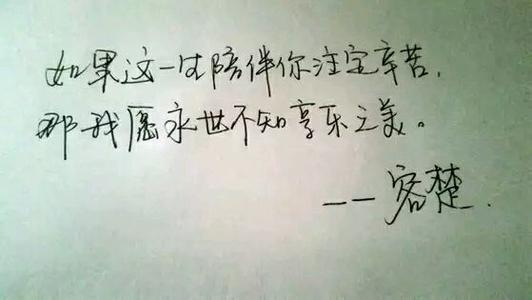 如果这一生陪伴你注定辛苦,
那我愿永世不知享乐之美。
——容楚.